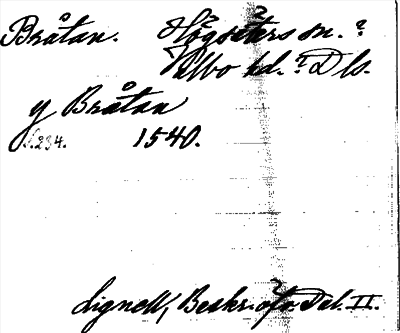 Bråtan. Högsäters sn. ?
Valbo hd. ? Dls.
y Bråtan
S.234. 1540.
Lignell, Beskr. öfv. Dal. II.